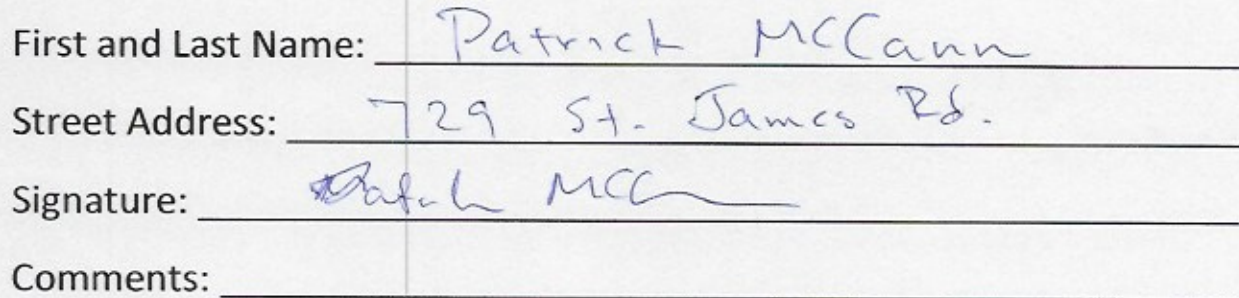 First and Last Name: Patrick McCann
Street Address: 729 St. James Rd.
Signature: Patrick McC
Comments: